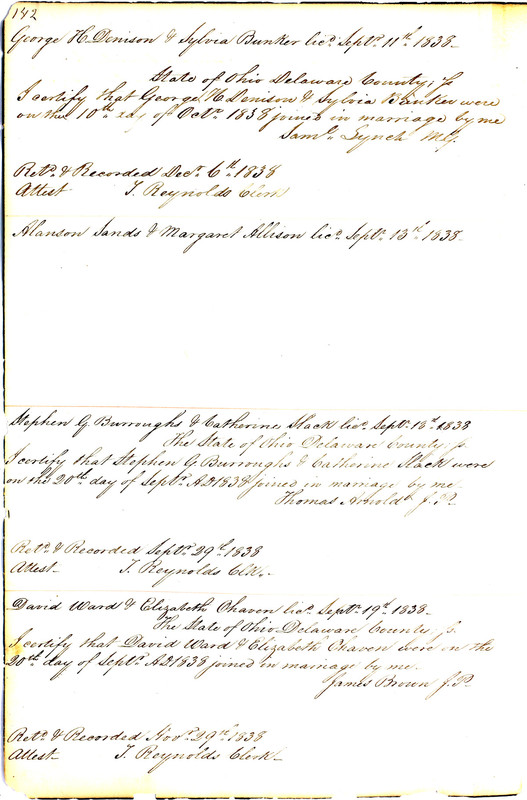 142
George H. Denison & Sylvia Bunker lic. Sept. 11th 1838
State of Ohio Delaware County, ss
I certify that George H Denison & Sylvia Bunker were
on the 10th day of Octr. 1838 joined in marriage by me
Saml. Lynch M.G.
Retd. & Recorded Decr. 6th 1838
Attest J. Reynolds Clerk
Alanson Sands & Margaret Allison lic. Septr. 13th 1838
Stephen G Burroughs & Catherine Slack lic. Septr. 18th 1838
The State of Ohio Delaware County ss
I certify that Stephen G. Burroughs & Catherine Slack were
on the 20th day of Septr. AD 1838 joined in marriage by me
Thomas Arnold J.P.
Retd. & Recorded Septr. 29th 1838
Attest J. Reynolds Clk.
David Ward & Elizabeth Chaven lic. Septr. 19th 1838
The State of Ohio Delaware County ss.
I certify that David Ward & Elizabeth Chaven were on the
20th day of Septr. AD 1838 joined in marriage by me
James Brown J.P.
Retd. & Recorded Novr. 29th 1838
Attest J. Reynolds Clerk